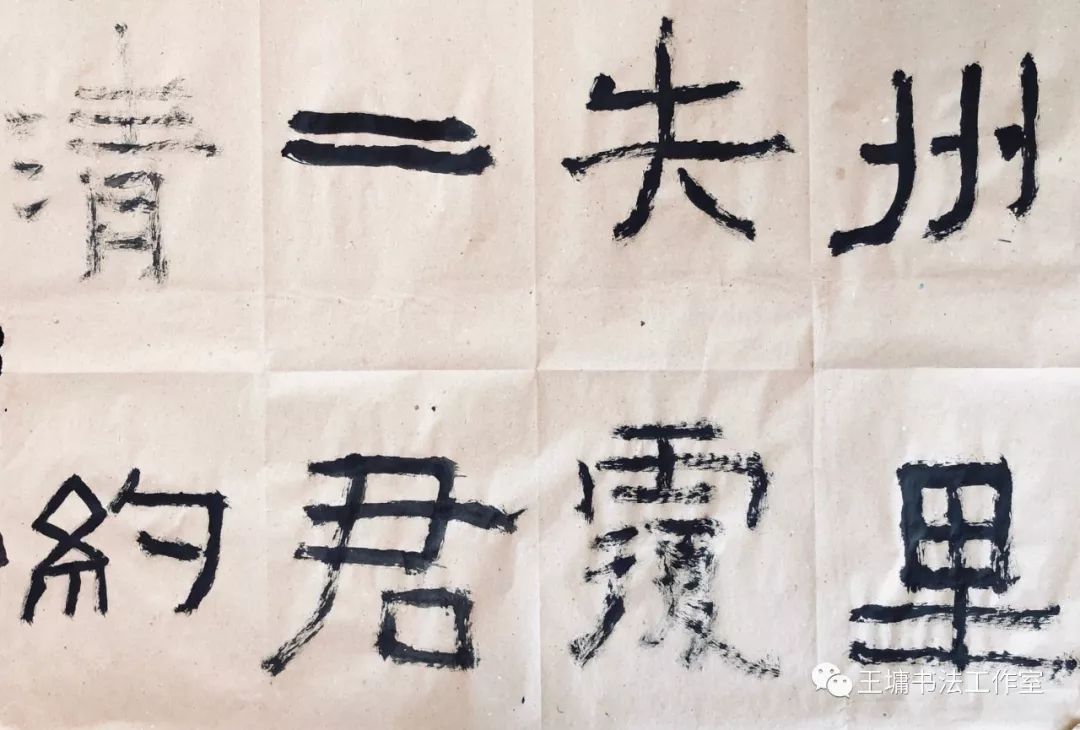 州里
失覆
二君
清約
王墉书法工作室